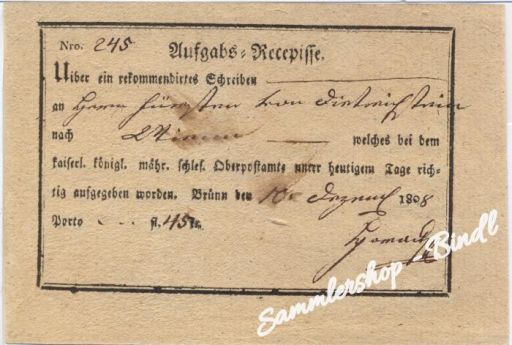 Nro. 245 Aufgabs-Recepisse.
Uiber ein rekommendirtes Schreiben
an Herrn Fürsten von Dietrichstein
nach Wienn welches bei dem
kaiserl. königl. mähr. schles. Oberpostamte unter heutigem Tage rich-
tig aufgegeben worden. Brünn den 10 Dezemb 1808
Porto fl. 45 kr.
Sammlershop - Bindl